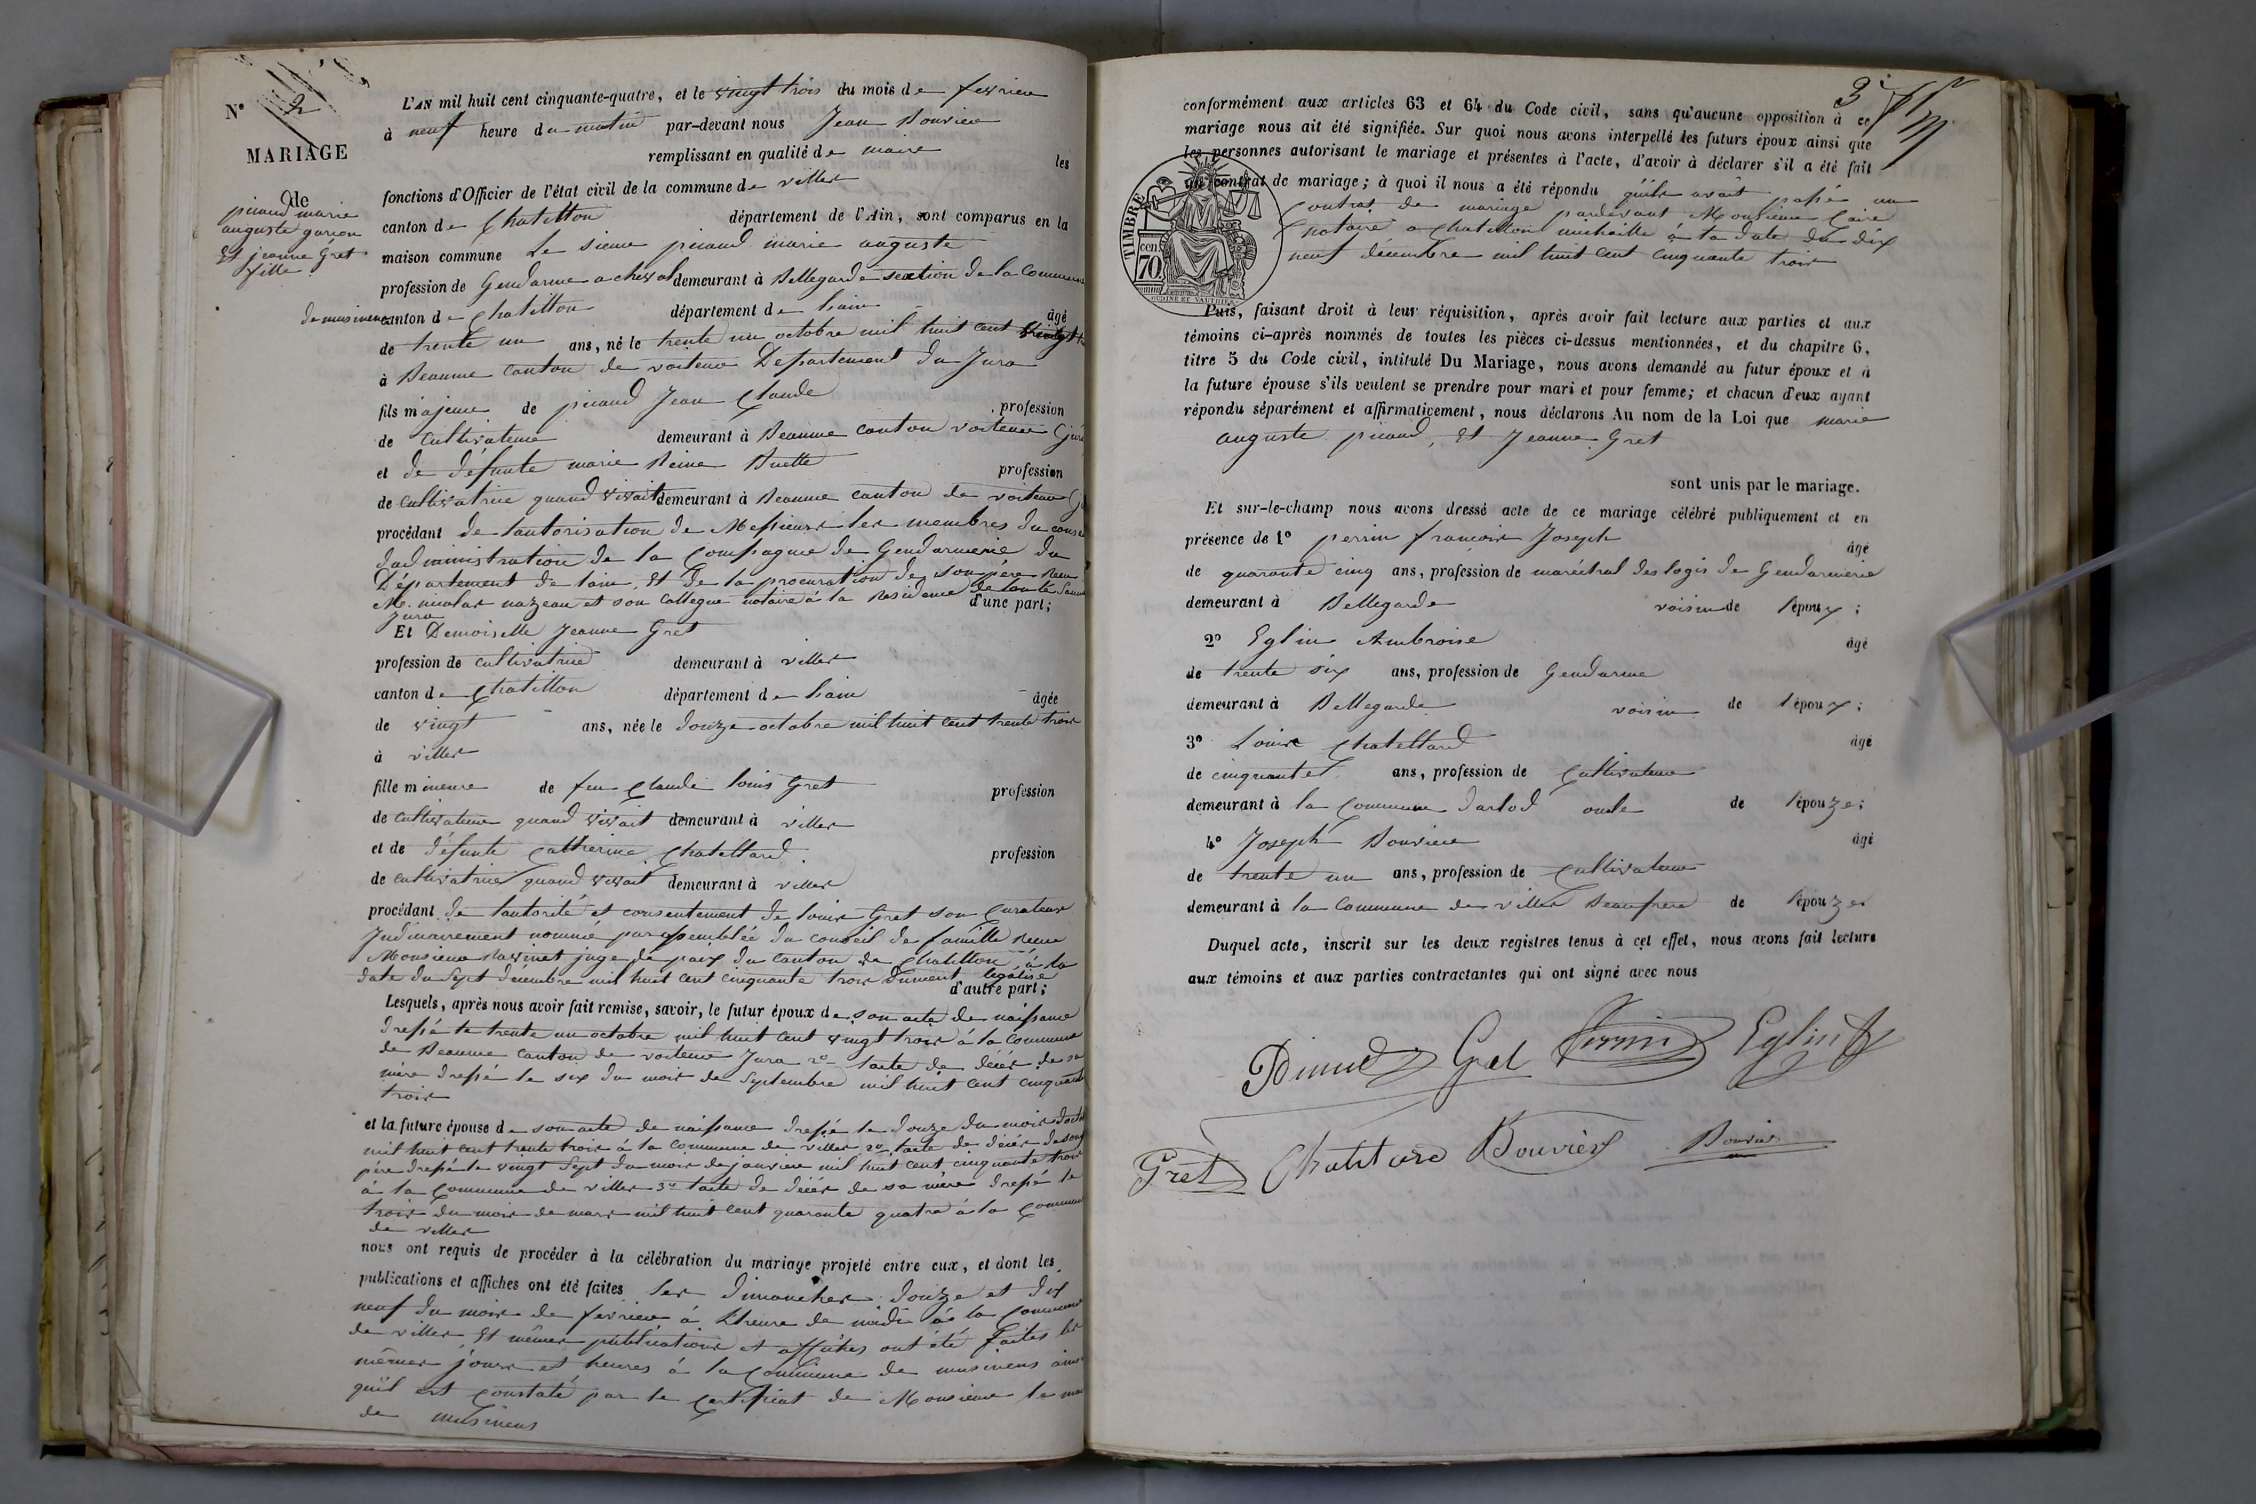 N° 2
MARIAGE
de
picaud marie
auguste garçon
Et jeanne Gret
fille
L'AN mil huit cent cinquante-quatre, et le vingt trois du mois de fevrier
à neuf heure du matin par-devant nous Jean Bouvier
remplissant en qualité de maire les
fonctions d'Officier de l'état civil de la commune de villes
canton de Chatillon département de l'Ain, sont comparus en la
maison commune Le sieur picaud marie auguste
profession de Gendarme a cheval demeurant à Bellegarde section de la Commune
de musinens canton de Chatillon département de l'ain âgé
de trente un ans, né le trente un octobre mil huit cent vingt
à Beaume canton de voiteur Département du Jura
fils majeur de picaud Jean Claude profession
de Cultivateur demeurant à Beaume canton voiteur (jura
et de défunte marie Reine Buette profession
de cultivatrice quand vivait demeurant à Beaume canton de voiteur (J
procédant de l'autorisation de Messieurs les membres du conseil
dadministration de la Compagnie de Gendarmerie du
Département de lain, Et de la procuration de son père Recu
Me. nicolas nazeau et son Collegue notaire à la Residence de
Jura d'une part;
Et Demoiselle Jeanne Gret
profession de cultivatrice demeurant à villes
canton de Chatillon département de lain âgée
de vingt ans, née le douze octobre mil huit cent trente trois
à villes
fille mineure de feu Claude louis Gret profession
de cultivateur quand vivait demeurant à villes
et de défunte Catherine Chatellard profession
de cultivatrice quand vivait demeurant à villes
procédant de l'autorité et consentement de louis Gret son Curateur
Judiciairement nommé par assemblée du conseil de famille Recue
Monsieur juge de paix du Canton de Chatillon, à la
date du Sept décembre mil huit cent cinquante trois Dument légalisé
d'autre part;
Lesquels, après nous avoir fait remise, savoir, le futur époux de son acte de naissance
dressé le trente un octobre mil huit cent vingt trois à la Commune
de Beaume canton de voiteur Jura 2° l'acte de décès de sa
mère dressé le six du mois de Septembre mil huit cent cinquante
trois
et la future épouse de son acte de naissance dressé le douze du mois doctobre
mil huit cent trente trois à la commune de villes 2° l'acte de décès de son
père dressé le vingt Sept du mois de janvier mil huit cent cinquante trois
à la Commune de villes 3° l'acte de décès de sa mère dressé le
trois du mois de mars mil huit cent quarante quatre à la Commune
de villes
nous ont requis de procéder à la célébration du mariage projeté entre eux, et dont les
publications et affiches ont été faites les dimanches douze et dix
neuf du mois de fevrier à l'heure de midi à la Commune
de villes Et mêmes publications et affiches ont été faites les
mêmes jours et heures à la Commune de musinens ainsi
qu'il est constaté par le certificat de Monsieur le maire
de musinens
3°
conformément aux articles 63 et 64 du Code civil, sans qu'aucune opposition à ce
mariage nous ait été signifiée. Sur quoi nous avons interpellé les futurs époux ainsi que
les personnes autorisant le mariage et présentes à l'acte, d'avoir à déclarer s'il a été fait
un contrat de mariage; à quoi il nous a été répondu qu'ils avait passé un
Contrat de mariage pardevant Monsieur Caire
notaire a Chatillon michaille à la date du dix
neuf décembre mil huit cent cinquante trois
TIMBRE
cen. 70
OUDINÉ ET VAUTHIER
Puis, faisant droit à leur réquisition, après avoir fait lecture aux parties et aux
témoins ci-après nommés de toutes les pièces ci-dessus mentionnées, et du chapitre 6,
titre 5 du Code civil, intitulé Du Mariage, nous avons demandé au futur époux et à
la future épouse s'ils veulent se prendre pour mari et pour femme; et chacun d'eux ayant
répondu séparément et affirmativement, nous déclarons Au nom de la Loi que marie
auguste picaud, Et Jeanne Gret
sont unis par le mariage.
Et sur-le-champ nous avons dressé acte de ce mariage célébré publiquement et en
présence de 1° perrin françois Joseph âgé
de quarante cinq ans, profession de maréchal des logis de Gendarmerie
demeurant à Bellegarde voisin de l'époux;
2° Eglin Ambroise âgé
de trente six ans, profession de Gendarme
demeurant à Bellegarde voisin de l'époux;
3° Louis Chatellard âgé
de cinquante ans, profession de Cultivateur
demeurant à la Commune darlod oncle de l'épouze;
4° Joseph Bouvier âgé
de trente un ans, profession de Cultivateur
demeurant à la Commune de villes Beaufrere de l'épouze
Duquel acte, inscrit sur les deux registres tenus à cet effet, nous avons fait lecture
aux témoins et aux parties contractantes qui ont signé avec nous
Picaud Gret Perrin Eglin
Gret Chatelard Bouvier Bouvier